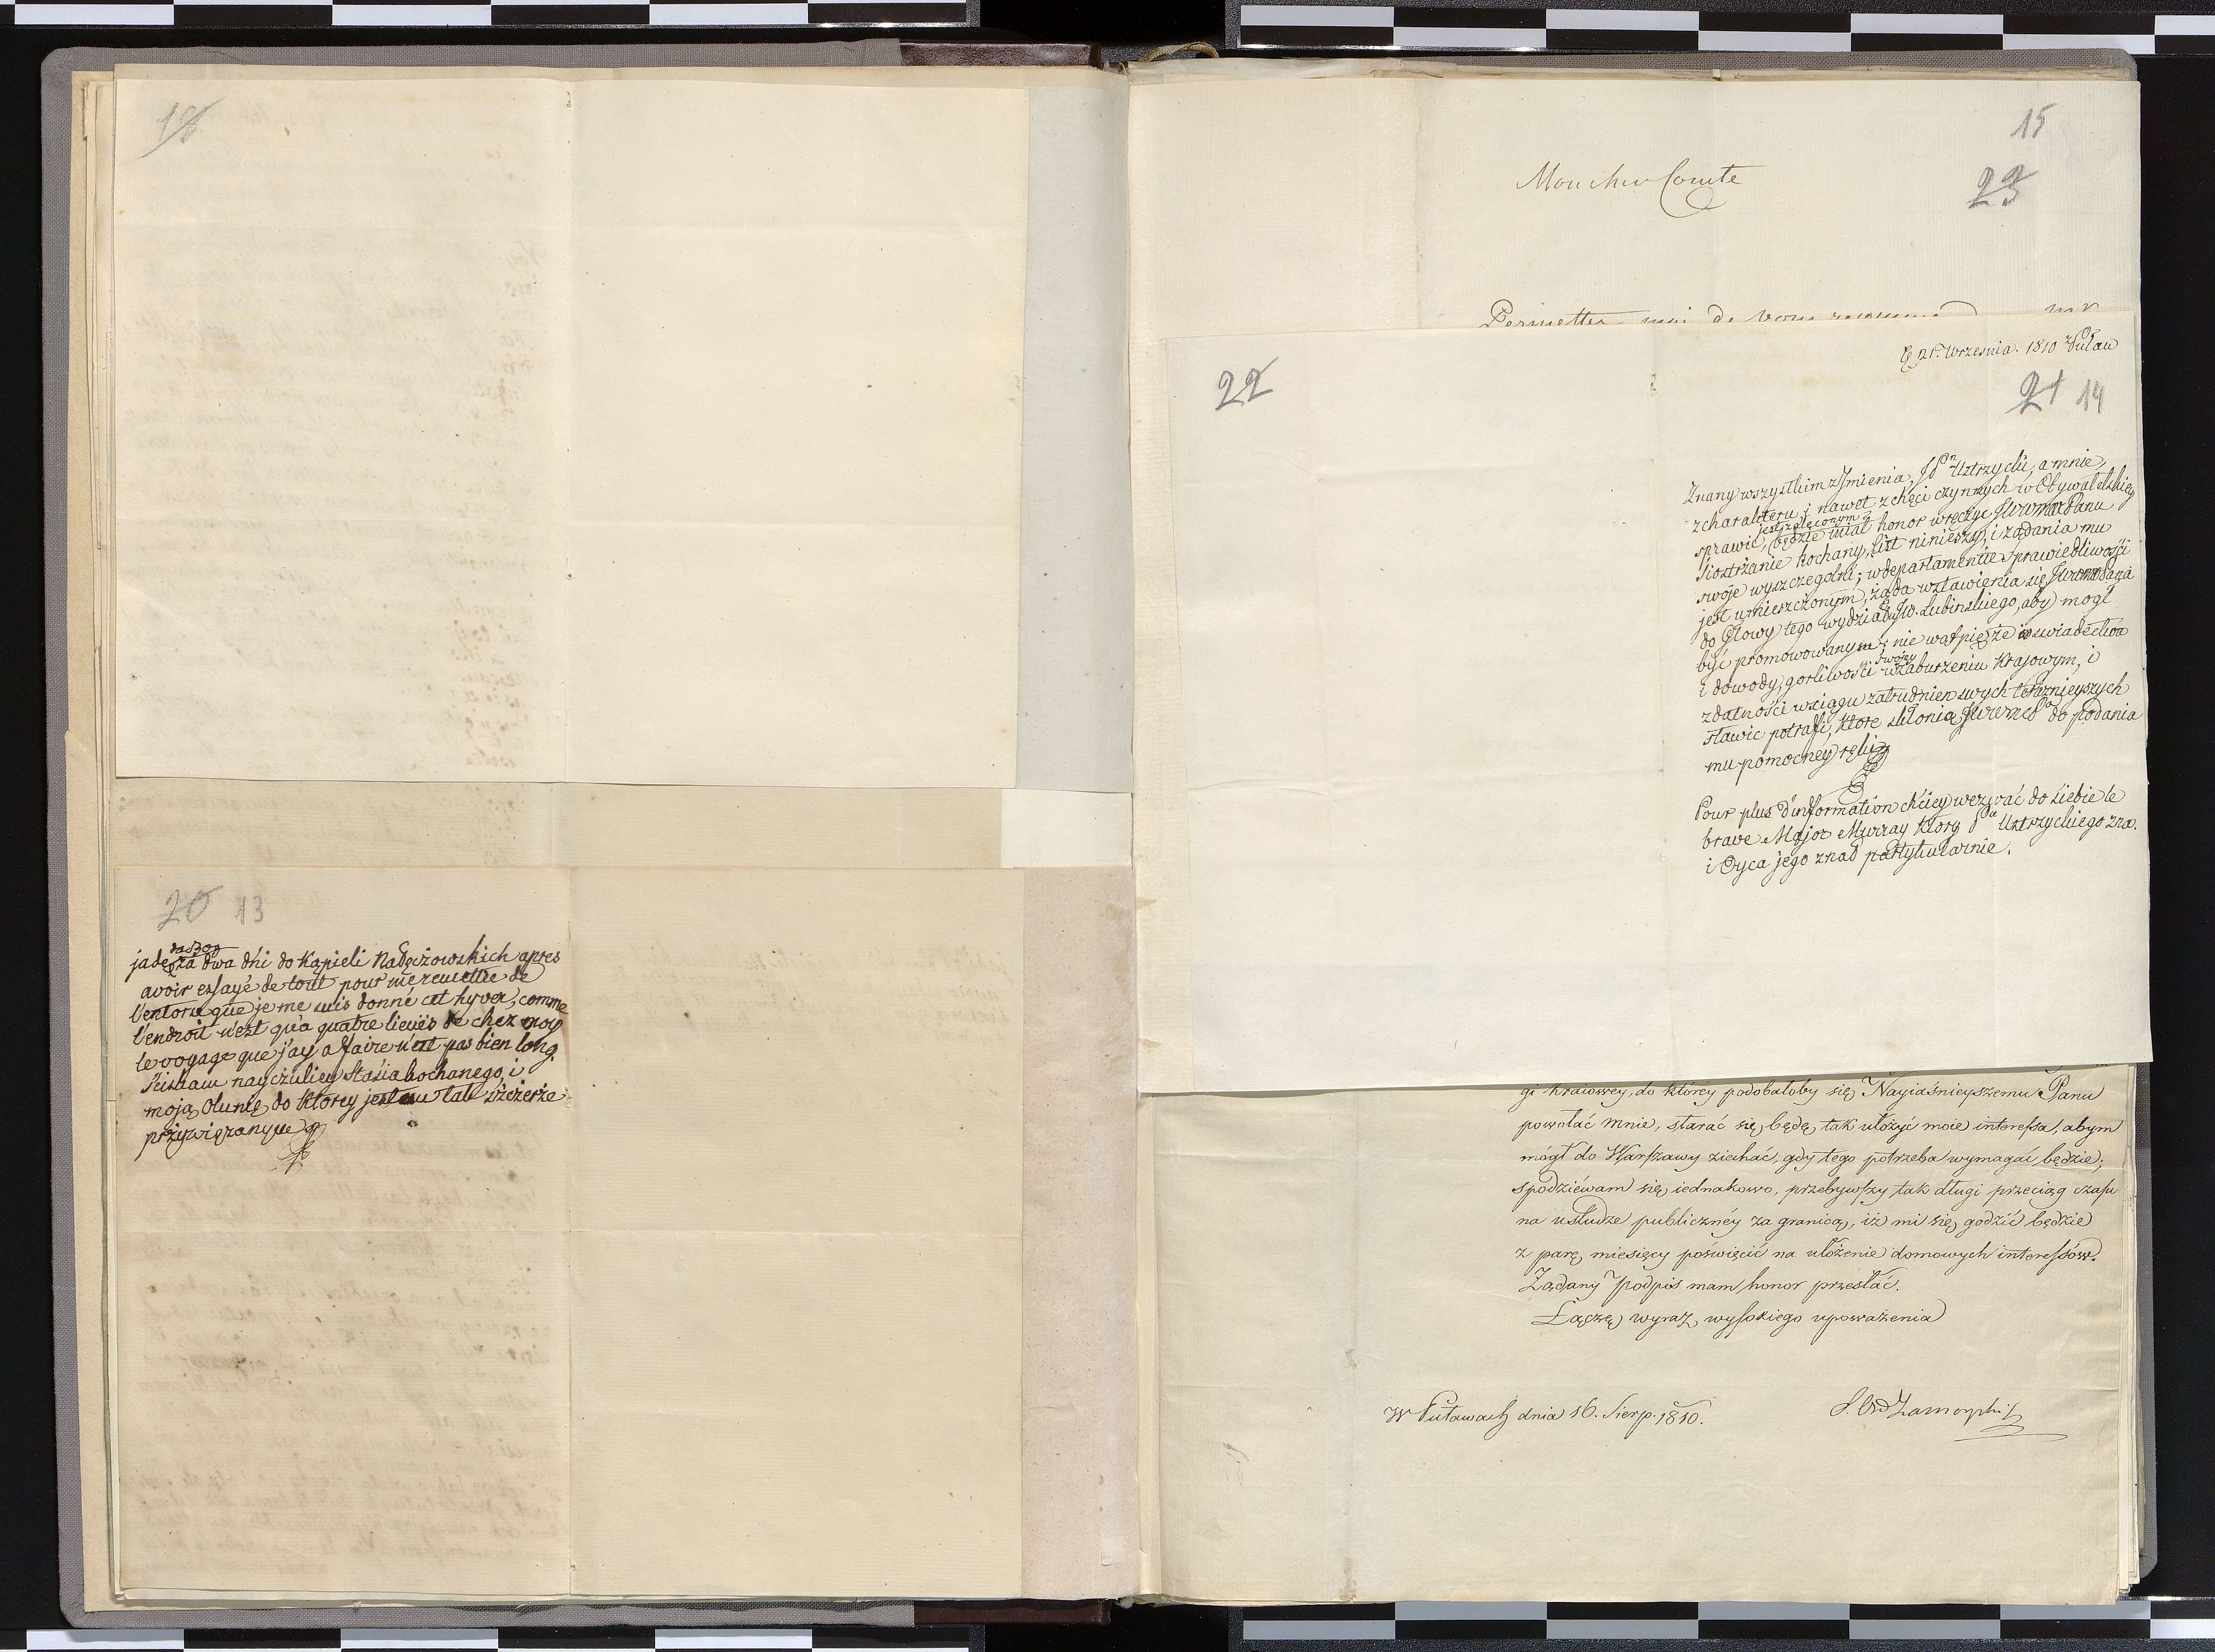 18
20 13
da Bog
jadę za dwa dni do Kąpieli Nałęczowskich apres
avoir essayé de tout pour me remettre de
l'entorse que je me suis donné cet hyver, comme
l'endroit n'est qu'a quatre lieues de chez moy
le voyage que j'ay a faire n'est pas bien long.
Sciskam nayczuliey Stasia kochanego, i
moją Olunię do ktorey jestem tak szczerze
przywiązanym
15
Mon cher Comte
23
Permettez moi de vous
D 21 Września. 1810 z Puław
22
21 14
Znany wszystkim z Jmienia, JPn Ustrzycki, a mnie
z charakteru i nawet z chęci czynnych w Obywatelskiey
jest zaleconym
sprawie, będzie miał honor wręczyć JWWmPPanu
Siostrzanie kochany, List ninieyszy, i żądania mu
swoje wyszczegolni; w departamencie Sprawiedliwości
jest umieszczonym, żąda wstawienia się JWWmPana
do Głowy tego wydziału JW. Lubinskiego, aby mogł
być promowowanym; nie wątpię że świadectwa
swojey
i dowody, gorliwości w zaburzeniu Krajowym, i
zdatności w ciągu zatrudnien swych teraznieyszych
stawić potrafi, ktore skłonią JWWmPa do podania
mu pomocney ręki
Pour plus d'information chciey wezwać do siebie le
brave Major Murray ktory Pa Ustrzyckiego zna.
i Oyca jego znał partykularnie.
gi kraiowey, do którey podobałoby się Nayiaśnieyszemu Panu
powołać mnie, starać się będę, tak ułożyć moie interessa, abym
mógł do Warszawy ziechać, gdy tego potrzeba wymagać będzie;
spodziéwam się iednakowo, przebywszy tak długi przeciąg czasu
na usłudze publicznéy za granicą, iż mi się godzić będzie
z parę miesięcy poświęcić na ułożenie domowych interessów.
Żądany podpis mam honor przesłać.
Łączę wyraz wysokiego upoważenia
W Puławach dnia 16. Sierp. 1810.
S. Ord Zamoyski